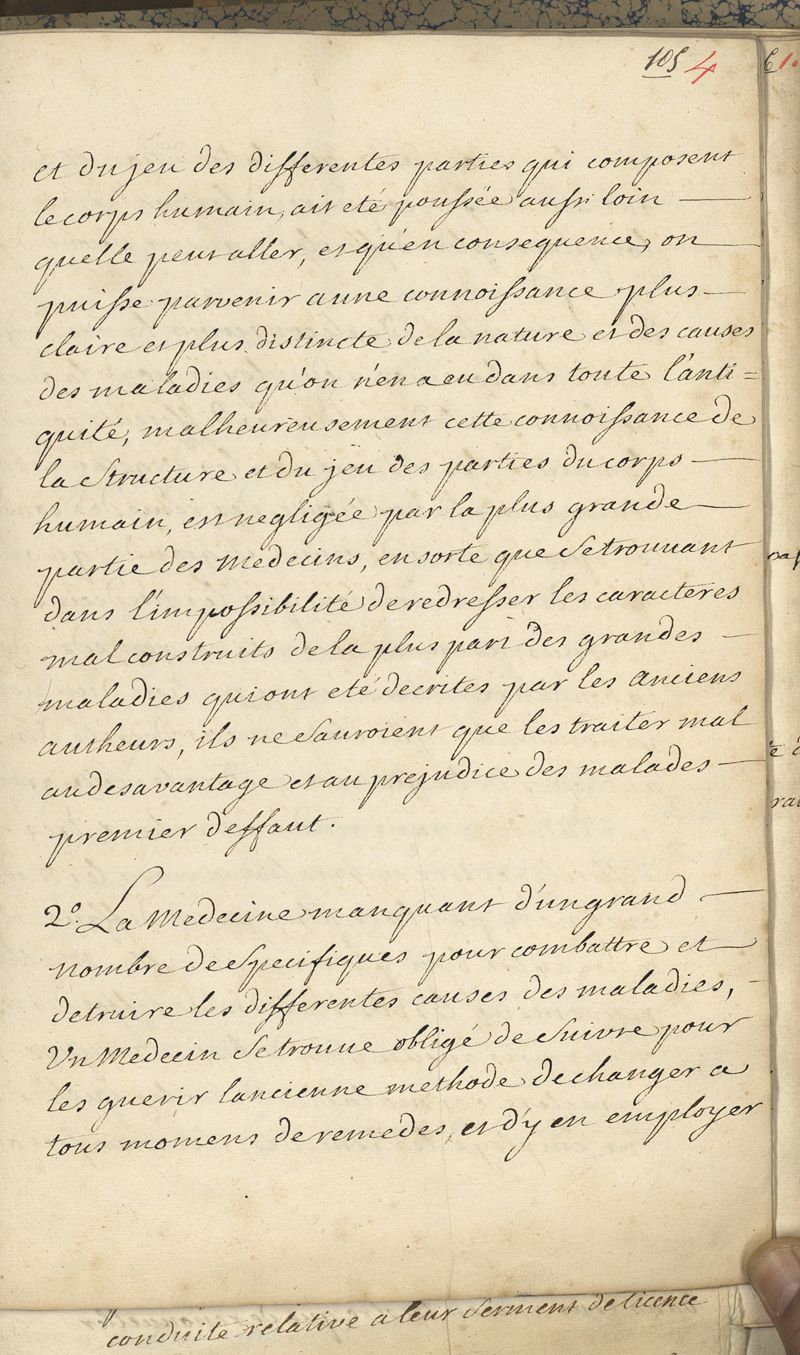 105 4
et du jeu des differentes parties qui composent
le corps humain, ait eté poussée aussi loin
quelle peut aller, et qu'en consequence, on
puisse parvenir a une connoissance plus
claire et plus distincte de la nature et des causes
des maladies qu'on n'en a eu dans toute l'anti=
quité, malheureusement cette connoissance de
la structure et du jeu des parties du corps
humain, est negligée par la plus grande
partie des medecins, en sorte que se trouvant
dans l'impossibilité de redresser les caracteres
mal construits de la plus part des grandes
maladies qui ont eté decrites par les anciens
autheurs, ils ne sauroient que les traiter mal
au desavantage et au prejudice des malades
premier deffaut.
2º. La Medecine manquant d'un grand
nombre de specifiques pour combattre et
detruire les differentes causes des maladies,
Un Medecin se trouve obligé de suivre pour
les guerir lancienne methode de changer a
tous momens de remedes, et d'y en employer
conduite relative a leur serment de licence